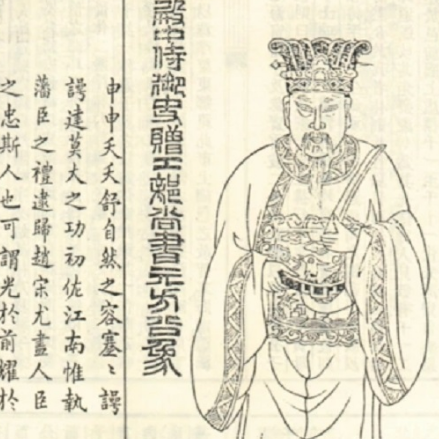 殿中侍御史贈工部尚書元方公象
申申夭夭舒自然之容蹇〻諤
諤建莫大之功初佐江南惟執
藩臣之禮逮歸趙宋尤盡人臣
之忠斯人也可謂光於前耀於